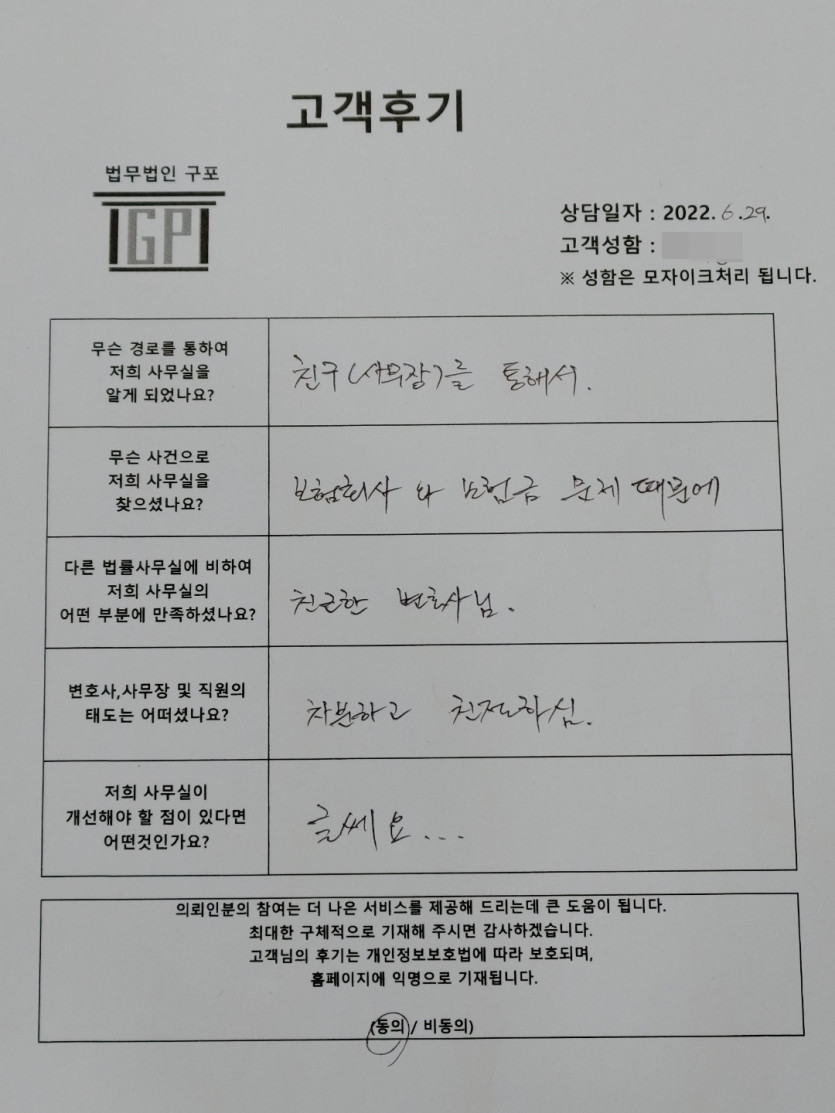 고객후기
법무법인 구포
GP
상담일자 : 2022. 6.29.
고객성함 :
※ 성함은 모자이크처리 됩니다.
무슨 경로를 통하여
저희 사무실을
알게 되었나요?
친구(사무장)를 통해서.
무슨 사건으로
저희 사무실을
찾으셨나요?
보험회사 와 보험금 문제 때문에
다른 법률사무실에 비하여
저희 사무실의
어떤 부분에 만족하셨나요?
친근한 변호사님.
변호사,사무장 및 직원의
태도는 어떠셨나요?
차분하고 친절하심.
저희 사무실이
개선해야 할 점이 있다면
어떤것인가요?
글쎄요...
의뢰인분의 참여는 더 나은 서비스를 제공해 드리는데 큰 도움이 됩니다.
최대한 구체적으로 기재해 주시면 감사하겠습니다.
고객님의 후기는 개인정보보호법에 따라 보호되며,
홈페이지에 익명으로 기재됩니다.
(동의 / 비동의)